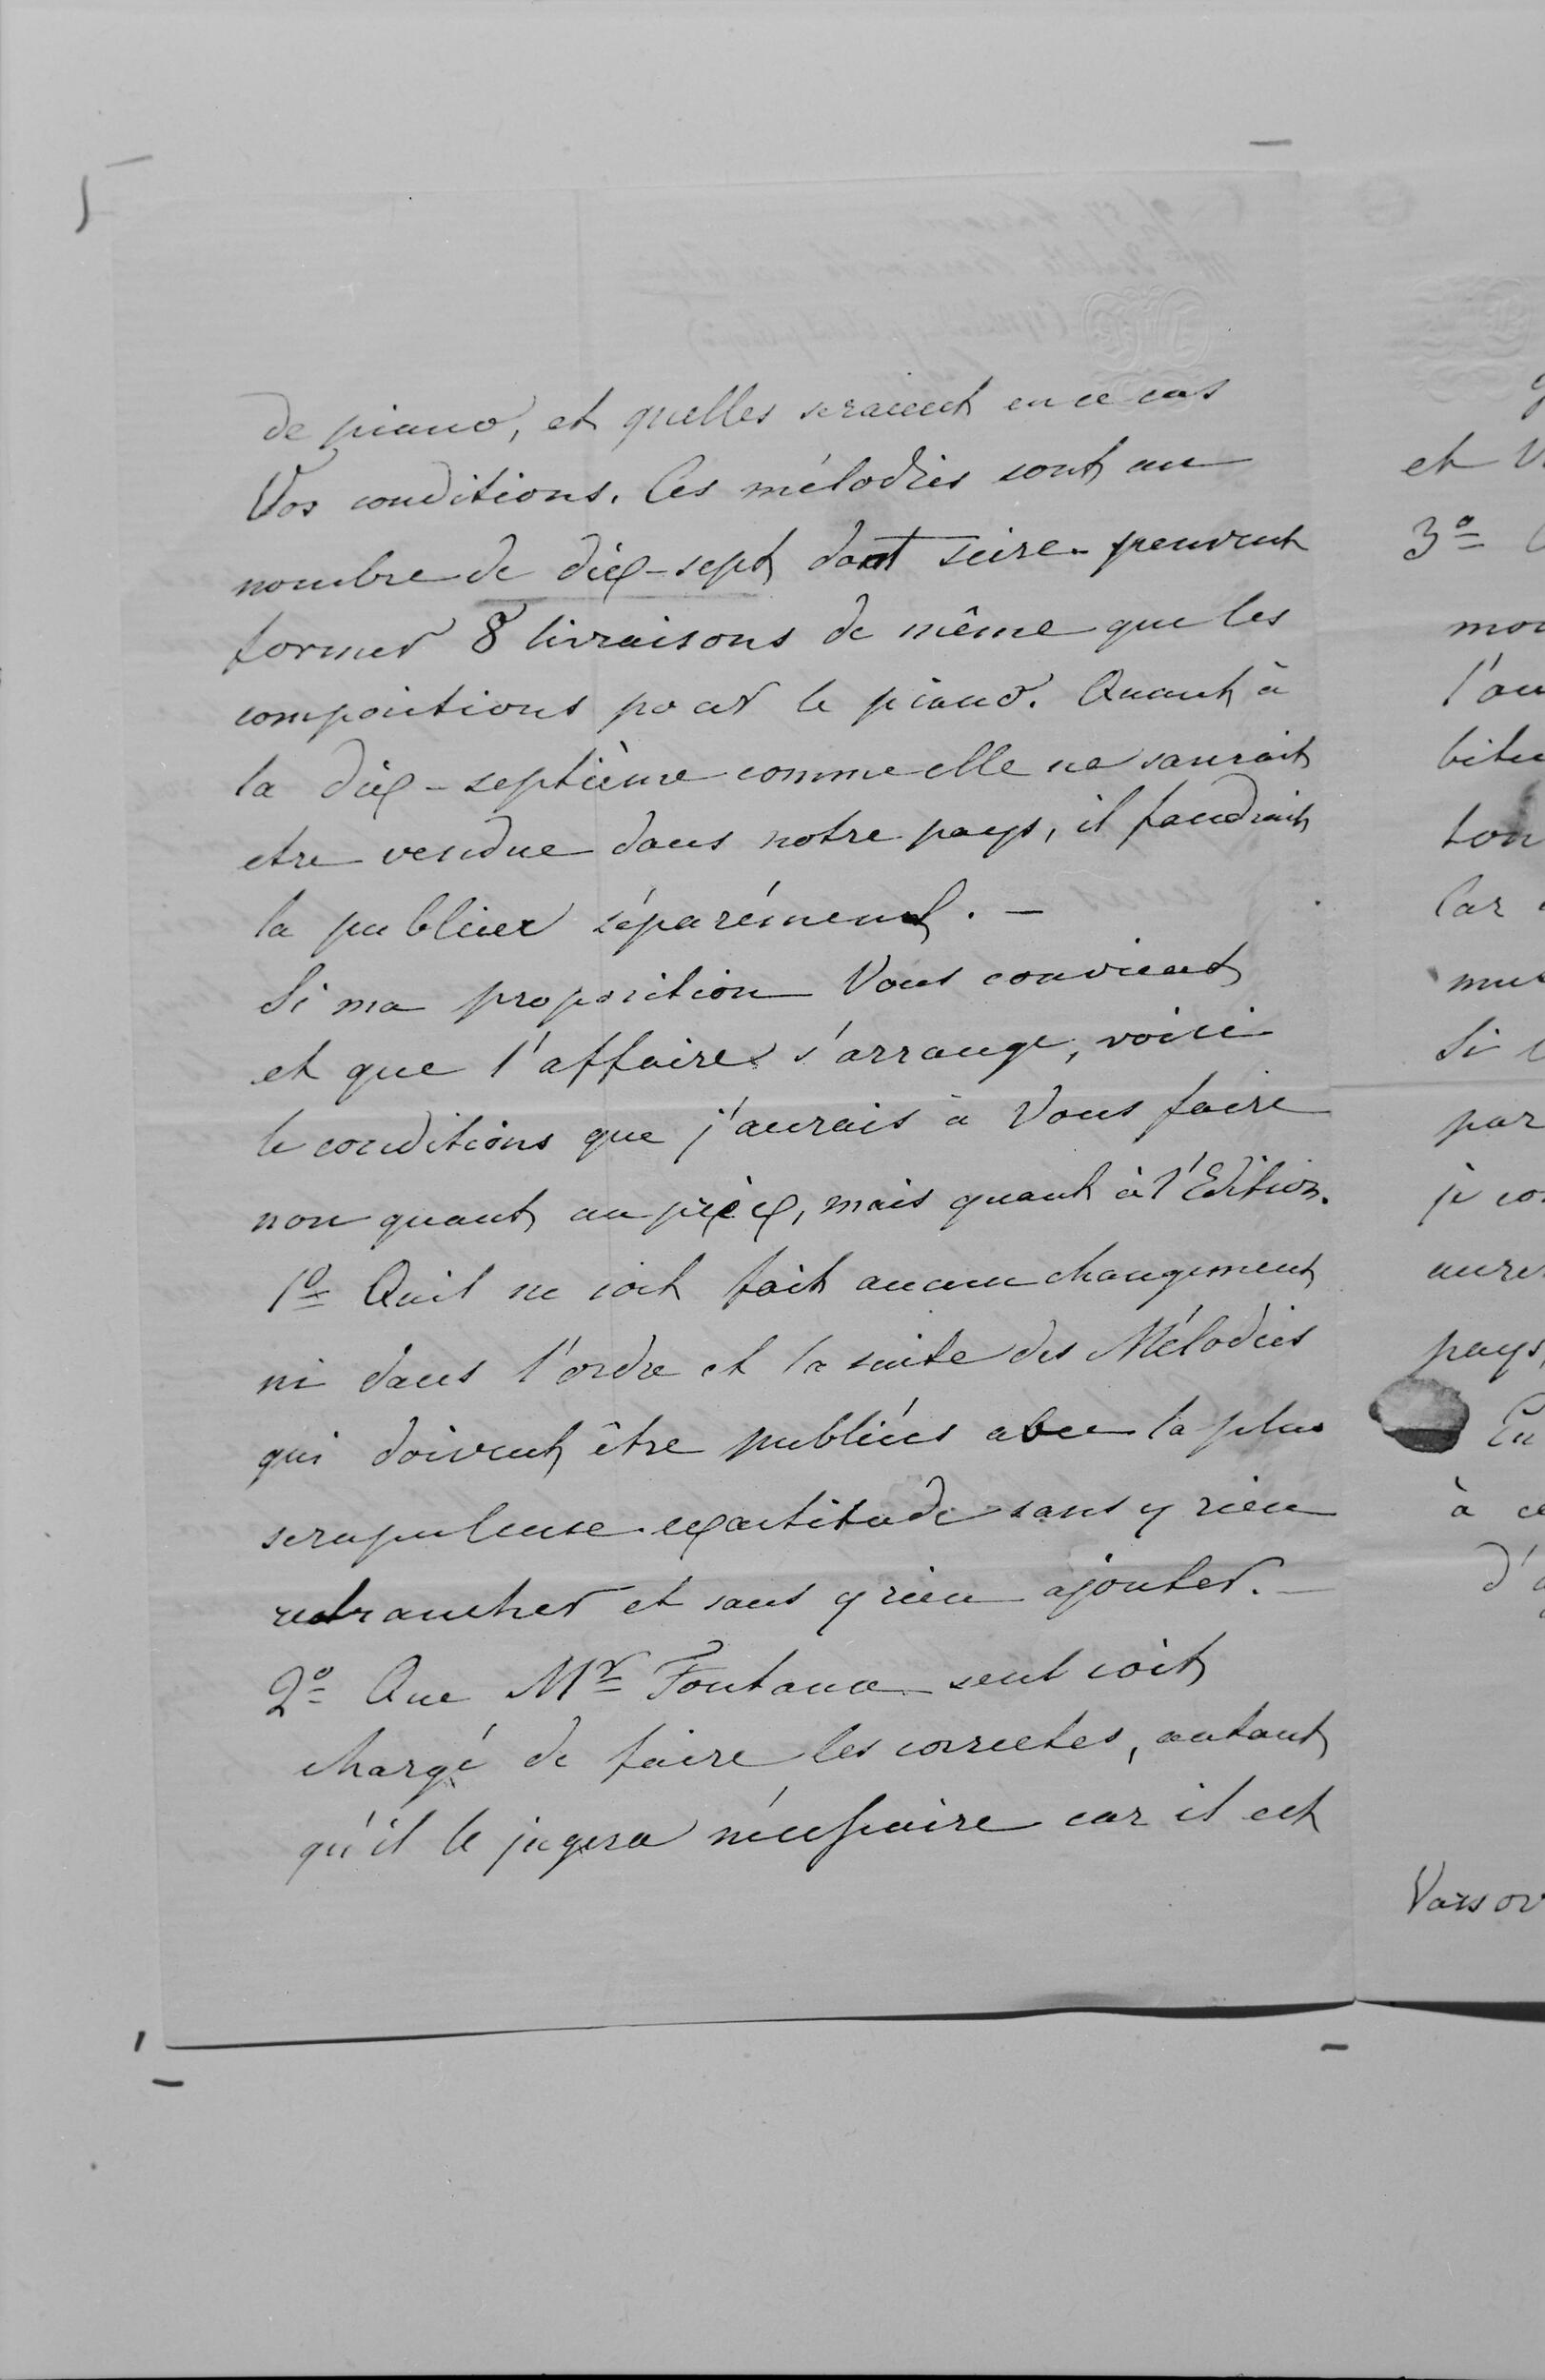 de piano, et quelles seraient en ce cas
Vos conditions. Ces mélodies sont au
nombre de dix-sept dont seize peuvent
former 8 livraisons de même que les
compositions pour le piano. Quant à
la dix-septième comme elle ne saurait
etre vendue dans notre pays, il faudrait
la publier séparément. —
Si ma proposition Vous convient
et que l'affaire s'arrange, voici
le conditions que j'aurais à Vous faire
non quant au prix, mais quant à l'Edition.
1º Qu'il ne soit fait aucun changement
ni dans l'ordre et la suite des Mélodies
qui doivent être publiées avec la plus
scrupuleuse exactitude sans y rien
retrancher et sans y rien ajouter. —
2º Que Mr Fontana seul soit
chargé de faire les correctes, autant
qu'il le jugera nécessaire car il est
et V
3º
mon
l'au
bitu
ton
Car
mus
Si
par
je co
aure
pays,
En
à ce
d'
Varsov